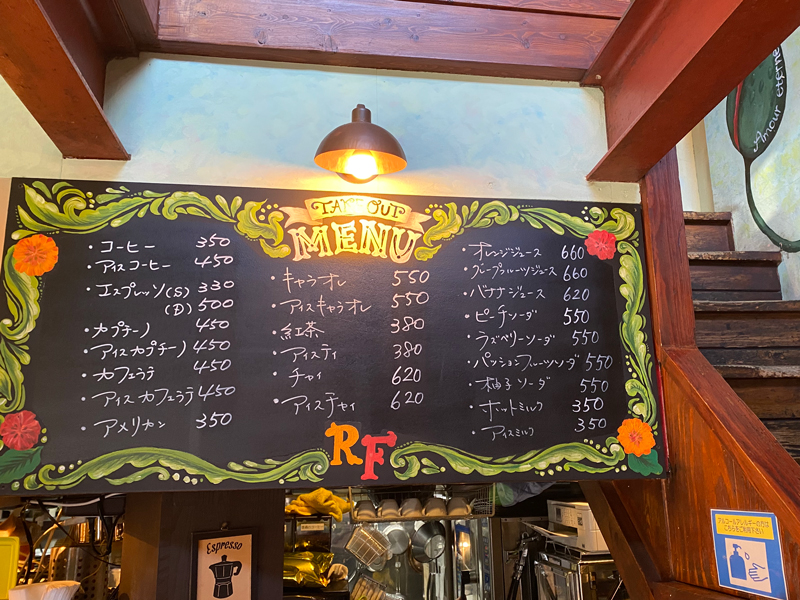 TAKE OUT
MENU
・コーヒー 350
・アイスコーヒー 450
・エスプレッソ(S) 330
(D) 500
・カプチーノ 450
・アイスカプチーノ 450
・カフェラテ 450
・アイスカフェラテ 450
・アメリカン 350
・キャラオレ 550
・アイスキャラオレ 550
・紅茶 380
・アイスティ 380
・チャイ 620
・アイスチャイ 620
・オレンジジュース 660
・グレープフルーツジュース 660
・バナナジュース 620
・ピーチソーダ 550
・ラズベリーソーダ 550
・パッションフルーツソーダ 550
・柚子ソーダ 550
・ホットミルク 350
・アイスミルク 350
RF
Amour éternel
Espresso
アルコールアレルギーの方は
こちらをご利用下さい